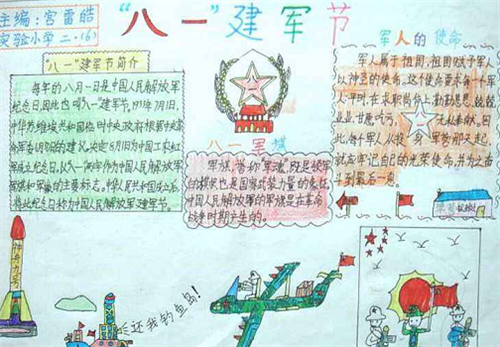 主编:宫雷皓
实验小学二·(6)
“八一”建军节
“八一”建军节简介
每年的八月一日是中国人民解放军
纪念日,因此也叫八一建军节。1933年7月1日,
中华苏维埃共和国临时中央政府根据中央革
命军事6月30日的建议,决定8月1日为中国工农红
军成立纪念日。以八一两字作为中国人民解放军
军旗和军徽的主要标志。中华人民共和国成立后,
将此纪念日称为中国人民解放军建军节。
八一军旗
军旗,誉称“军魂”,既是被军
的标志也是国家武装力量的象征,
中国人民解放军的军旗是在革命
战争时期产生的。
军人的使命
军人属于祖国,祖国赋予军人
以神圣的使命。这个使命要求每一个军
人平时,在本职岗位上,勤勤恳恳,兢兢
业业,甘愿吃亏,无私奉献。因
此,每个军人从投身军营那天起,
就应牢记自己的光荣使命,并为之奋
斗到最后一息。
神舟九号
还我钓鱼岛!